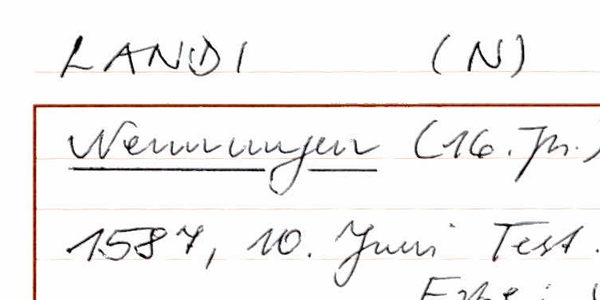 LANDI (N)
Nennungen (16. Jh.)
1587, 10. Juni Test.